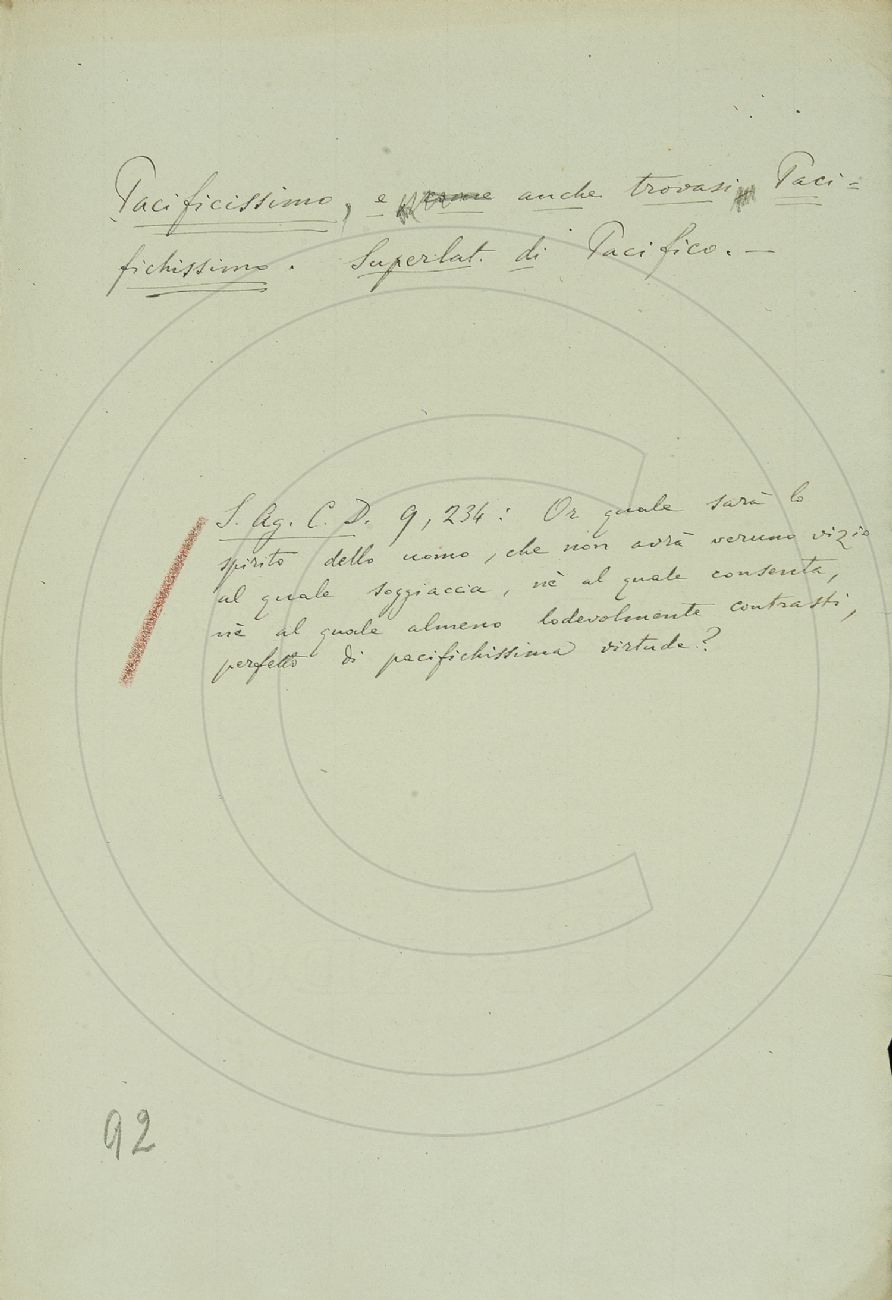 Pacificissimo, e come anche trovasi Paci=
fichissimo. Superlat. di Pacifico. —
S. Ag. C. D. 9, 234: Or quale sarà lo
spirito dello uomo, che non avrà veruno vizio
al quale soggiaccia, nè al quale consenta,
nè al quale almeno lodevolmente contrasti,
perfetto di pacifichissima virtude?
92